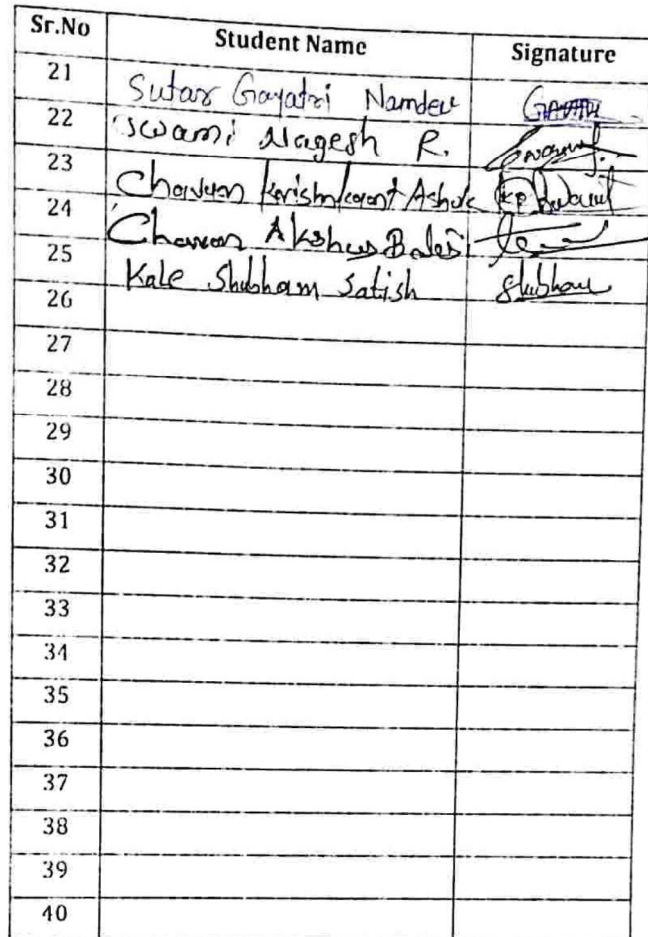 Sr.No Student Name Signature
21 Sutar Gayatri Namdev
22 Swami Nagesh R.
23 Chavan Krishnkant Ashok
24 Chavan Akshay
25 Kale Shubham Satish Shubham
26
27
28
29
30
31
32
33
34
35
36
37
38
39
40